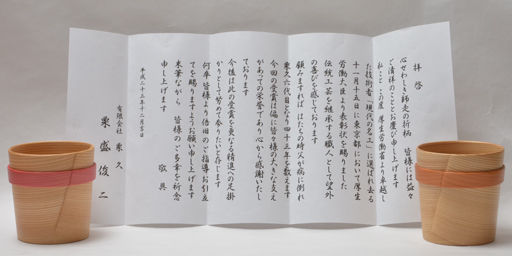 拝啓
心せわしき師走の折柄　皆様には益々
ご清祥のこととお慶び申し上げます
私こと　この度　厚生労働省より卓越し
た技術者「現代の名工」に選ばれ去る
十一月十五日に東京都において厚生
労働大臣より表彰状を賜りました
伝統工芸を継承する職人として望外
の喜びを感じております
顧みますれば　はたちの時父が病に倒れ
栗久六代目となり四十三年を数えます
今回の受賞は偏に皆々様の大きな支え
があっての栄誉であり心から感謝いたし
ております
今後は此の受賞を更なる精進への足掛
かりとして努めて参りたいと存じます
何卒　皆様より倍旧のご指導お引立
てを賜りますようお願い申し上げます
末筆ながら　皆様のご多幸を祈念
申し上げます
敬具
平成二十三年十二月吉日
有限会社　栗久
栗盛俊二